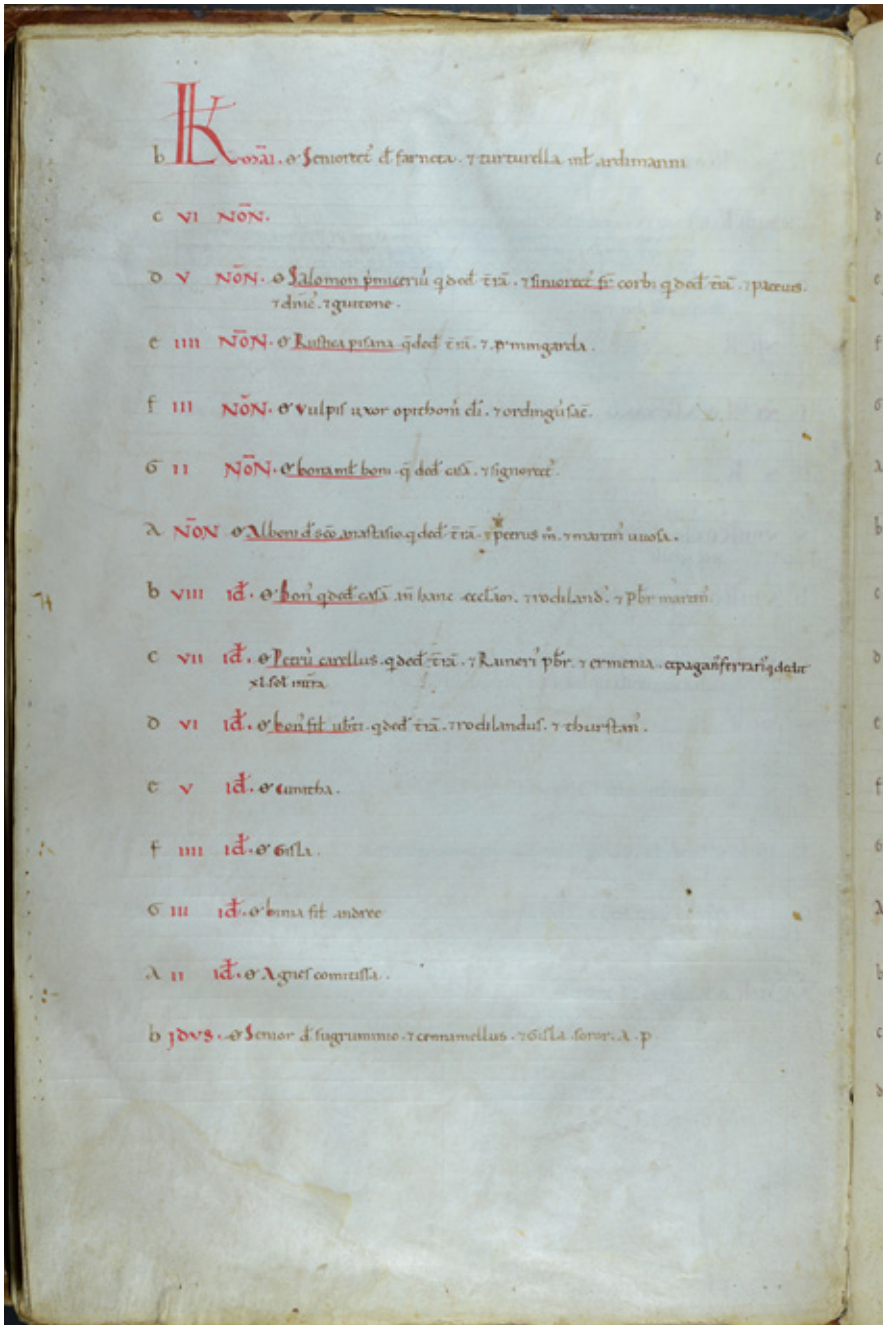 b KL MAI. o Seniorect' d' farneta. ⁊ turturella mł ardimanni
c VI NON̄.
d V NON̄. o Salomon p̄miceriu' q̄ ded' t̄rā. ⁊ siniorect' fr̄ corbi q ded' t̄rā. ⁊ paceuis.
⁊ dn̄ic'. ⁊ guitone.
e IIII NON̄. o Rustica pisana q̄ ded' t̄rā. ⁊ ermingarda.
f III NON̄. o Vulpis uxor opithonis cl̄i. ⁊ ordingus sac̄.
G II NON̄. o bona mł boni q̄ ded' casā. ⁊ signorect'.
A NON̄ o Alboni d' sc̄o anastasio q ded' t̄rā. ⁊ petrus m̄. ⁊ martin' uuosa.
b VIII ID̄. o bon' q ded' casā in hanc eccl'iam. ⁊ rodiland'. ⁊ pb̄r martin'
c VII ID̄. o Petru' carellus q ded' t̄rā. ⁊ Runeri' pb̄r. ⁊ ermenia. et pagan' ferrari' q dedit
xl. sol'
d VI ID̄. o bon' fił ub̄ti. q ded' t̄rā. ⁊ rodilandus. ⁊ thurstan'.
e V ID̄. o Cunitha.
f IIII ID̄. o Gisla.
G III ID̄. o bima fił andree
A II ID̄. o Agnes comitissa.
b IDVS. o Senior d' sugruminio. ⁊ cennamellus. ⁊ Gisla soror. A. p